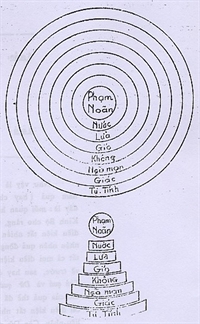 Phạm
Noãn
Nước
Lửa
Gió
Không
Ngã mạn
Giác
Tự. Tính
Phạm
Noãn
Nước
Lửa
Gió
Không
Ngã mạn
Giác
Tự. Tính